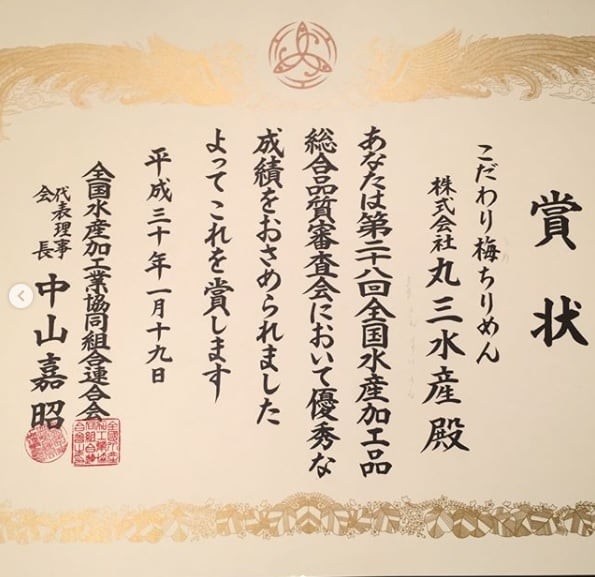 賞状
こだわり梅ちりめん
株式会社 丸三水産 殿
あなたは第二十八回全国水産加工品
総合品質審査会において優秀な
成績をおさめられました
よってこれを賞します
平成三十年一月十九日
全国水産加工業協同組合連合会
代表理事
会長 中山嘉昭